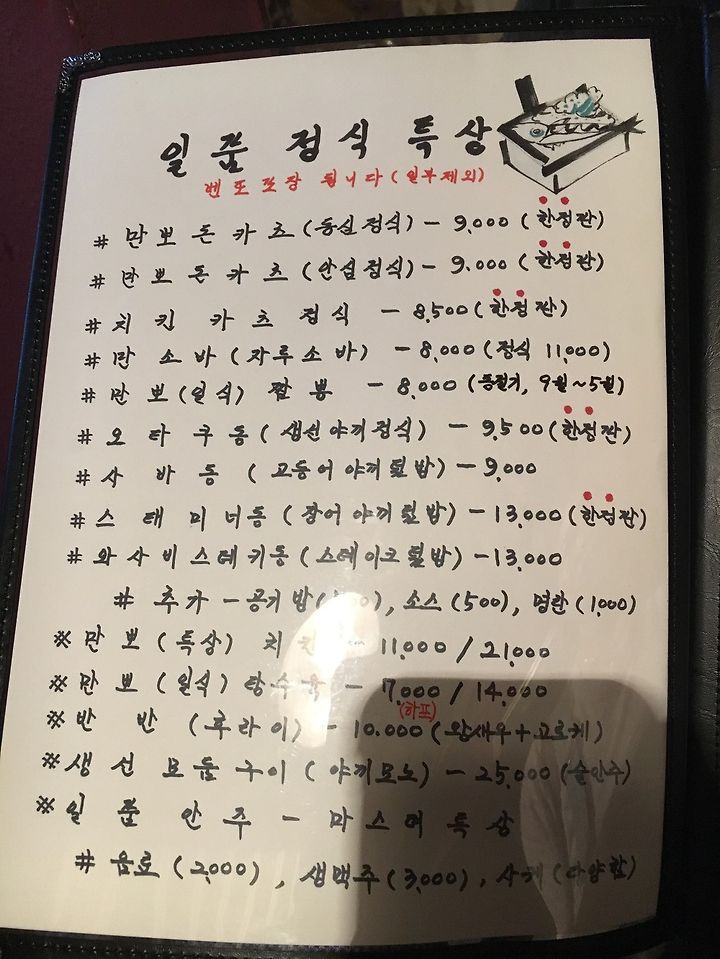 일품 정식 특상
벤또포장 됩니다 (일부제외)
# 만뽀돈카츠 (등심정식) - 9,000 (한정판)
# 만뽀돈카츠 (안심정식) - 9,000 (한정판)
# 치킨 카츠 정식 - 8,500 (한정판)
# 만소바 (자루소바) - 8,000 (정식 11,000)
# 만뽀 (일식) 짬뽕 - 8,000 (동절기, 9월~5월)
# 오타쿠동 (생선야끼정식) - 9,500 (한정판)
# 사바동 (고등어야끼덮밥) - 9,000
# 스태미너동 (장어야끼덮밥) - 13,000 (한정판)
# 와사비스테키동 (스테이크덮밥) - 13,000
# 추가 - 공기밥, 소스 (500), 명란 (1,000)
※ 만뽀 (특상) 치킨 - 11,000 / 21,000
※ 만뽀 (일식) 탕수육 - 7,000 / 14,000
(하프)
※ 반반 (후라이) - 10,000 (왕새우+고로케)
※ 생선모듬구이 (야끼모노) - 25,000 (술안주)
※ 일품안주 - 마스터특상
# 음료 (2,000), 생맥주 (3,000), 사케 (다양함)